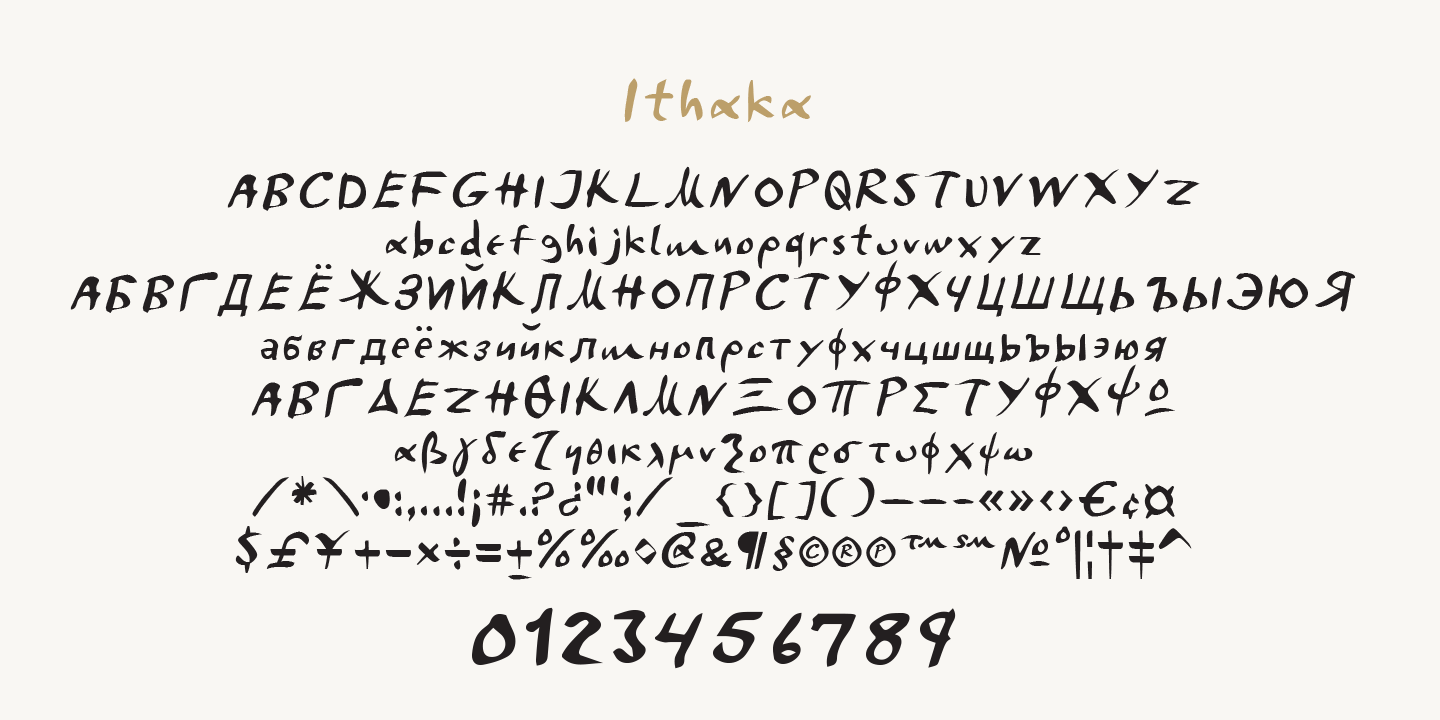 Ithaka
ABCDEFGHIJKLMNOPQRSTUVWXYZ
abcdefghijklmnopqrstuvwxyz
АБВГДЕЁЖЗИЙКЛМНОПРСТУФХЧЦШЩЬЪЫЭЮЯ
абвгдеёжзийклмнопрстуфхчцшщьъыэюя
ΑΒΓΔΕΖΗΘΙΚΛΜΝΞΟΠΡΣΤΥΦΧΨΩ
αβγδεζηθικλμνξοπρστυφχψω
/*\·•:,…!¡#.?¿"';/_{}[]()—–-«»‹›€¢¤
$£¥+−×÷=±%‰◊@&¶§©®℗™℠№°|¦†‡^
0123456789